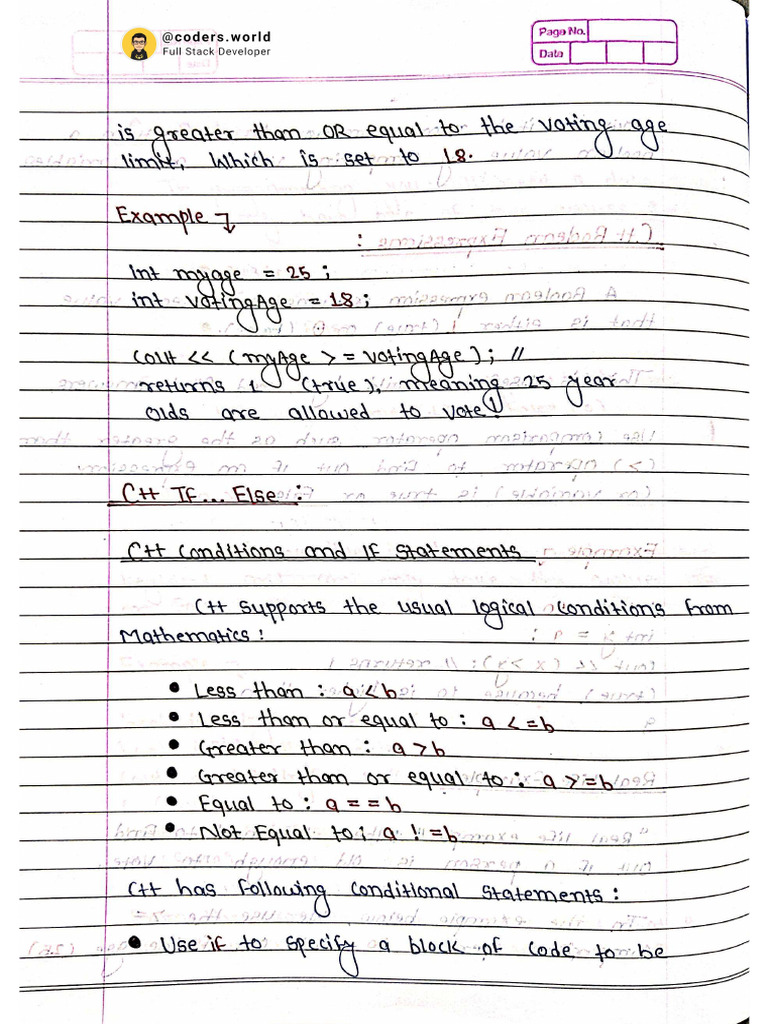 @coders.world
Full Stack Developer
Page No.
Date
is greater than OR equal to the voting age
limit, Which is set to 18.
Example
int myage = 25 ;
int votingAge = 18 ;
cout << (myAge > = votingAge) ; //
returns 1 (true), meaning 25 year
olds are allowed to vote!
C++ If... Else :
C++ Conditions and If statements
C++ supports the usual logical conditions from
Mathematics :
• Less than : a < b
• Less than or equal to : a < = b
• Greater than : a > b
• Greater than or equal to : a > = b
• Equal to : a = = b
• Not Equal to : a ! = b
C++ has following conditional statements :
• Use if to specify a block of code to be